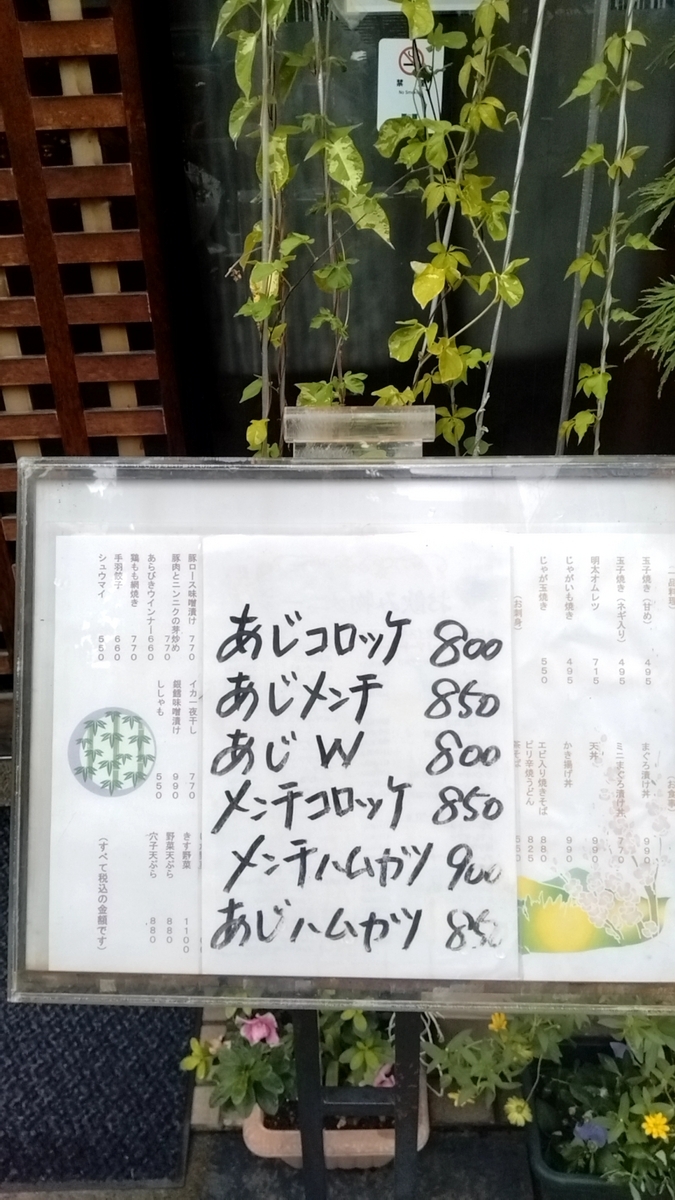 禁
No Smoking
あじコロッケ 800
あじメンチ 850
あじ W 800
メンチコロッケ 850
メンチハムカツ 900
あじハムカツ 850
玉子焼き(甘め) 495
玉子焼き(ネギ入り) 495
明太オムレツ 715
じゃがいも焼き 495
じゃが玉焼き 550
(お刺身)
(お食事)
まぐろ漬け丼 990
ミニまぐろ漬け丼 770
天丼 990
かき揚げ丼 990
エビ入り焼きそば 880
ピリ辛焼うどん 825
茶そば 550
豚ロース味噌漬け 770
豚肉とニンニクの芽炒め 770
あらびきウインナー 660
鶏もも網焼き 770
手羽餃子 660
シュウマイ 550
イカ一夜干し 770
銀鱈味噌漬け 990
ししゃも 550
きす野菜 1100
野菜天ぷら 880
穴子天ぷら 880
(すべて税込の金額です)